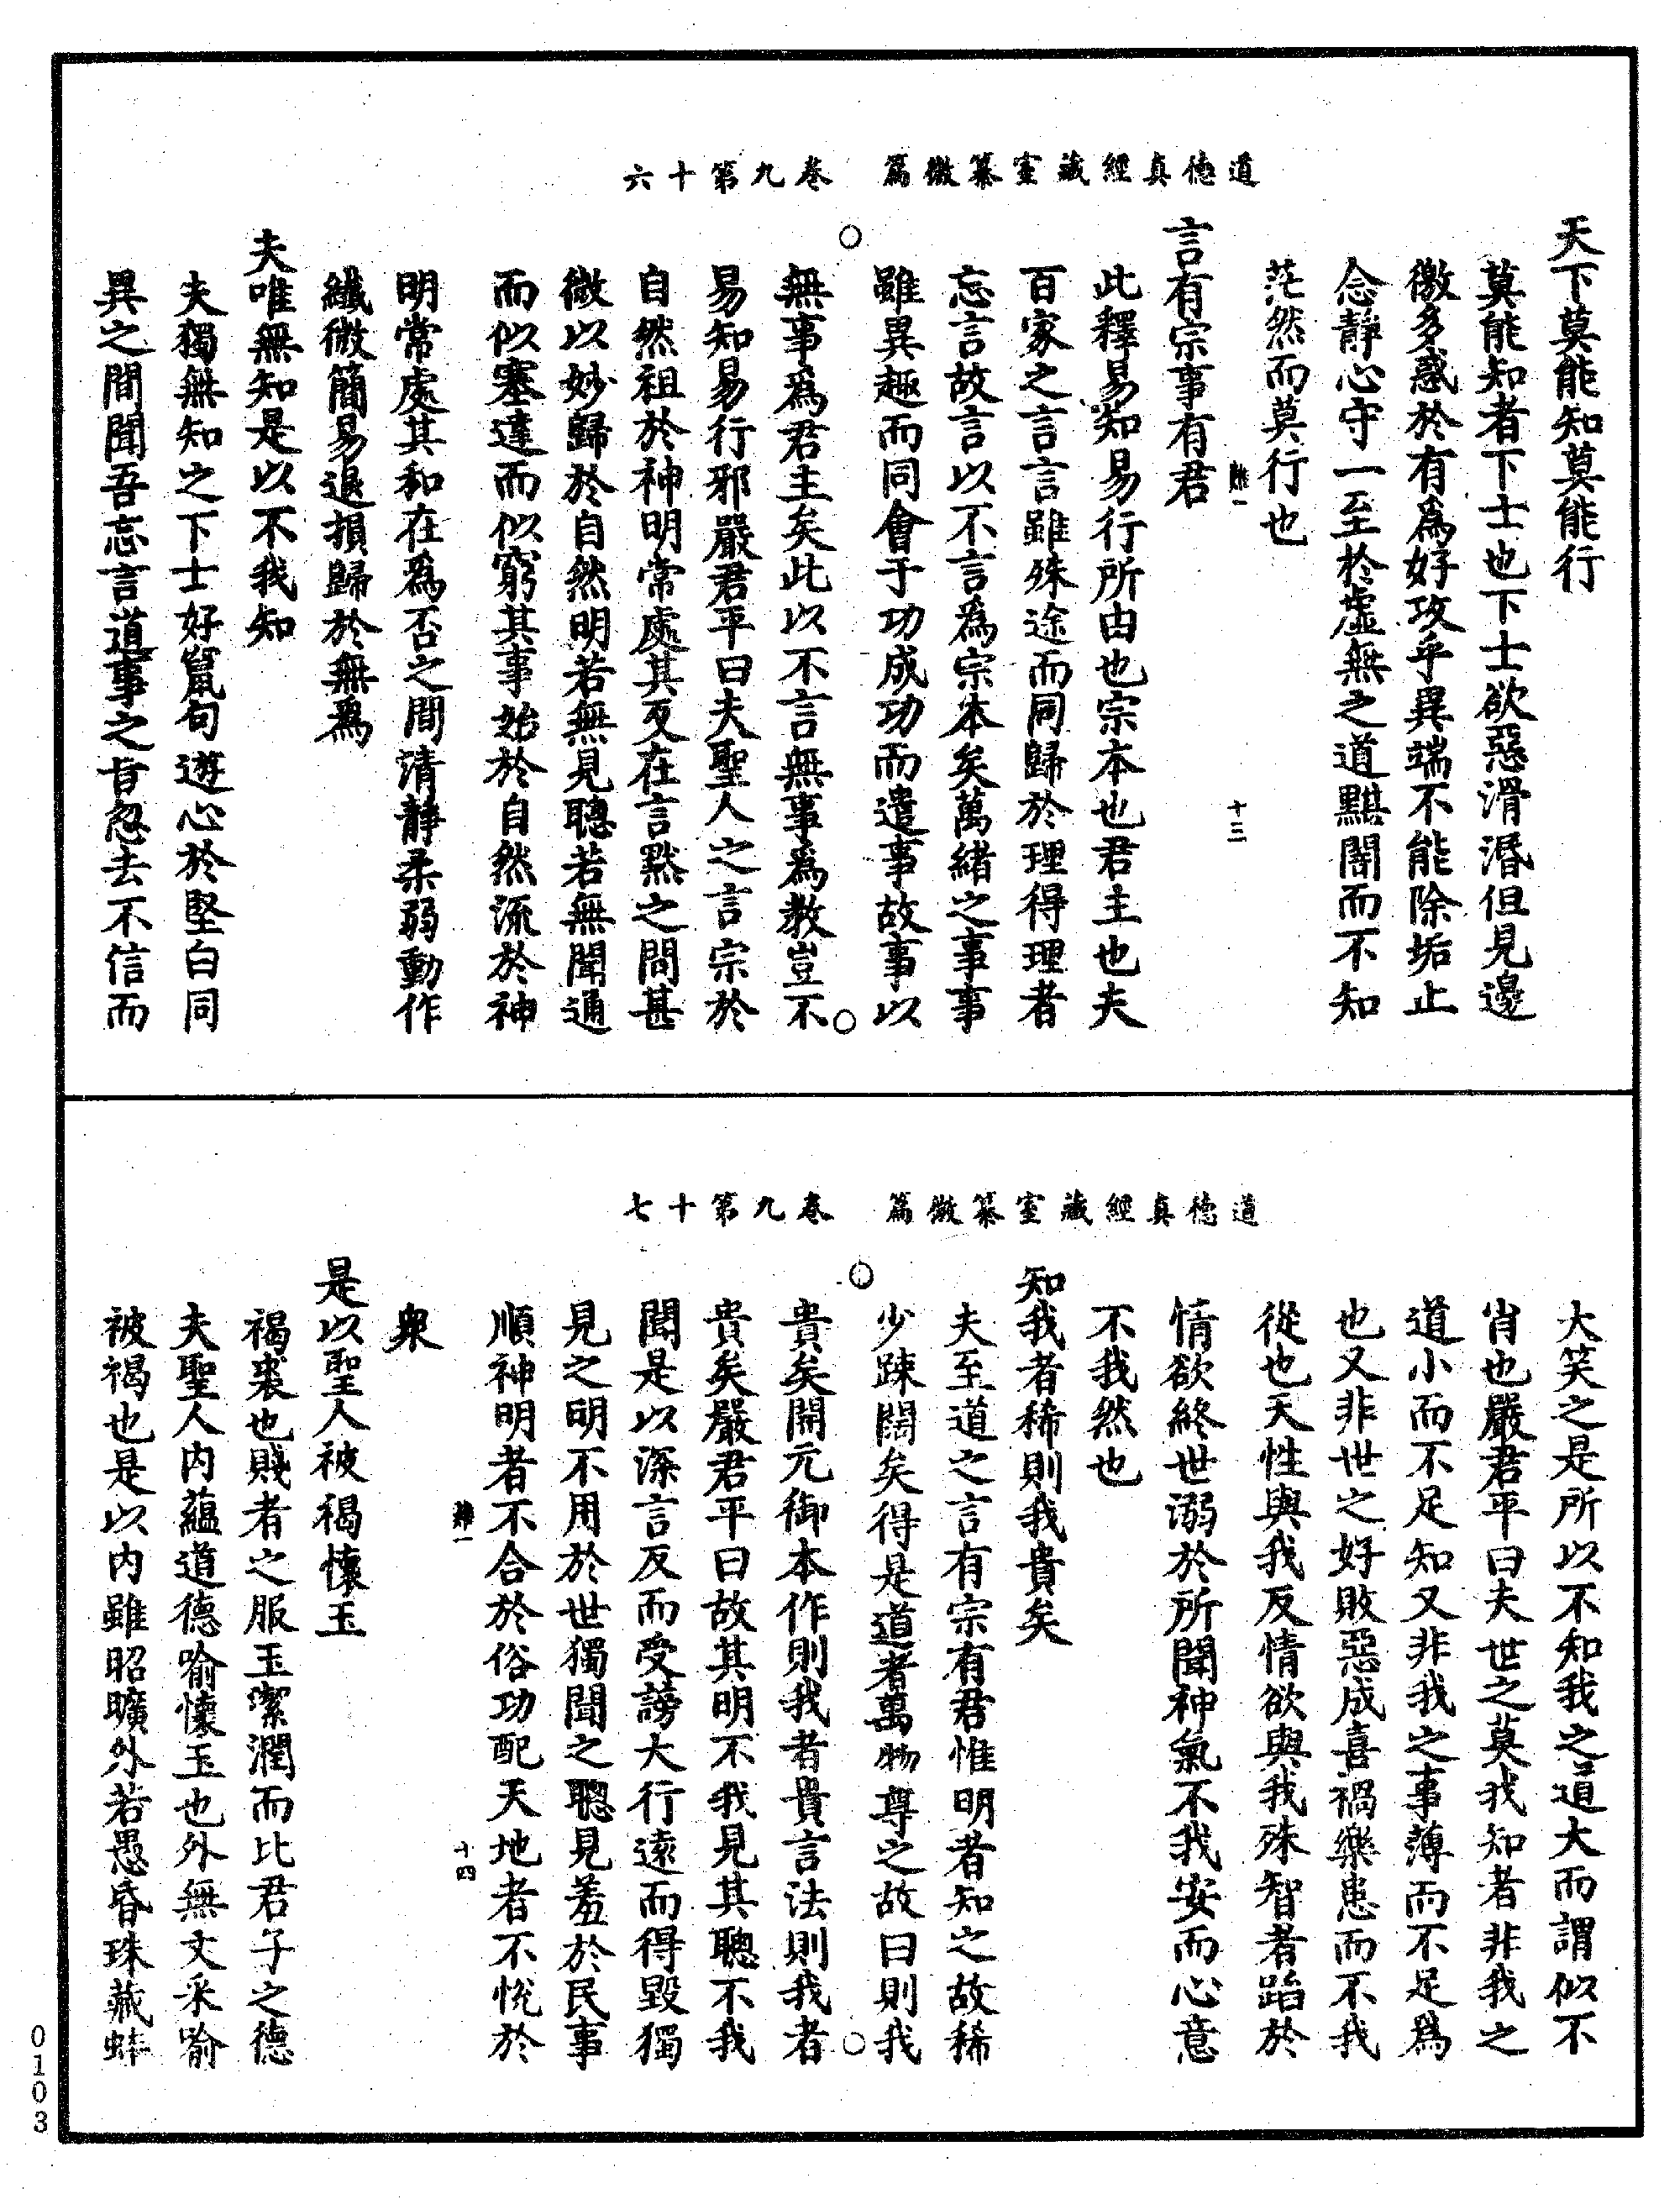 道德真經藏室纂微篇　卷九第十六
天下莫能知莫能行
莫能知者下士也下士欲惡滑湣但見邊
徼多惑於有爲好攻乎異端不能除垢止
念靜心守一至於虛無之道黮闇而不知
茫然而莫行也
難一
十三
言有宗事有君
此釋易知易行所由也宗本也君主也夫
百家之言言雖殊途而同歸於理得理者
忘言故言以不言爲宗本矣萬緒之事事
雖異趣而同會于功成功而遣事故事以
無事爲君主矣此以不言無事爲教豈不
易知易行邪嚴君平曰夫聖人之言宗於
自然祖於神明常處其反在言默之間甚
微以妙歸於自然明若無見聰若無聞通
而似塞達而似窮其事始於自然流於神
明常處其和在爲否之間清靜柔弱動作
纖微簡易退損歸於無爲
夫唯無知是以不我知
夫獨無知之下士好竄句遊心於堅白同
異之間聞吾忘言道事之旨忽去不信而
道德真經藏室纂微篇　卷九第十七
大笑之是所以不知我之道大而謂似不
肖也嚴君平曰夫世之莫我知者非我之
道小而不足知又非我之事薄而不足爲
也又非世之好敗惡成喜禍樂患而不我
從也天性與我反情欲與我殊智者跆於
情欲終世溺於所聞神氣不我安而心意
不我然也
知我者稀則我貴矣
夫至道之言有宗有君惟明者知之故稀
少踈闊矣得是道者萬物尊之故曰則我
貴矣開元御本作則我者貴言法則我者
貴矣嚴君平曰故其明不我見其聰不我
聞是以深言反而受謗大行遠而得毀獨
見之明不用於世獨聞之聰見羞於民事
順神明者不合於俗功配天地者不悅於
難一
十四
衆
是以聖人被褐懷玉
褐裘也賤者之服玉潔潤而比君子之德
夫聖人内蘊道德喻懷玉也外無文采喻
被褐也是以内雖昭曠外若愚昏珠藏蚌
0103